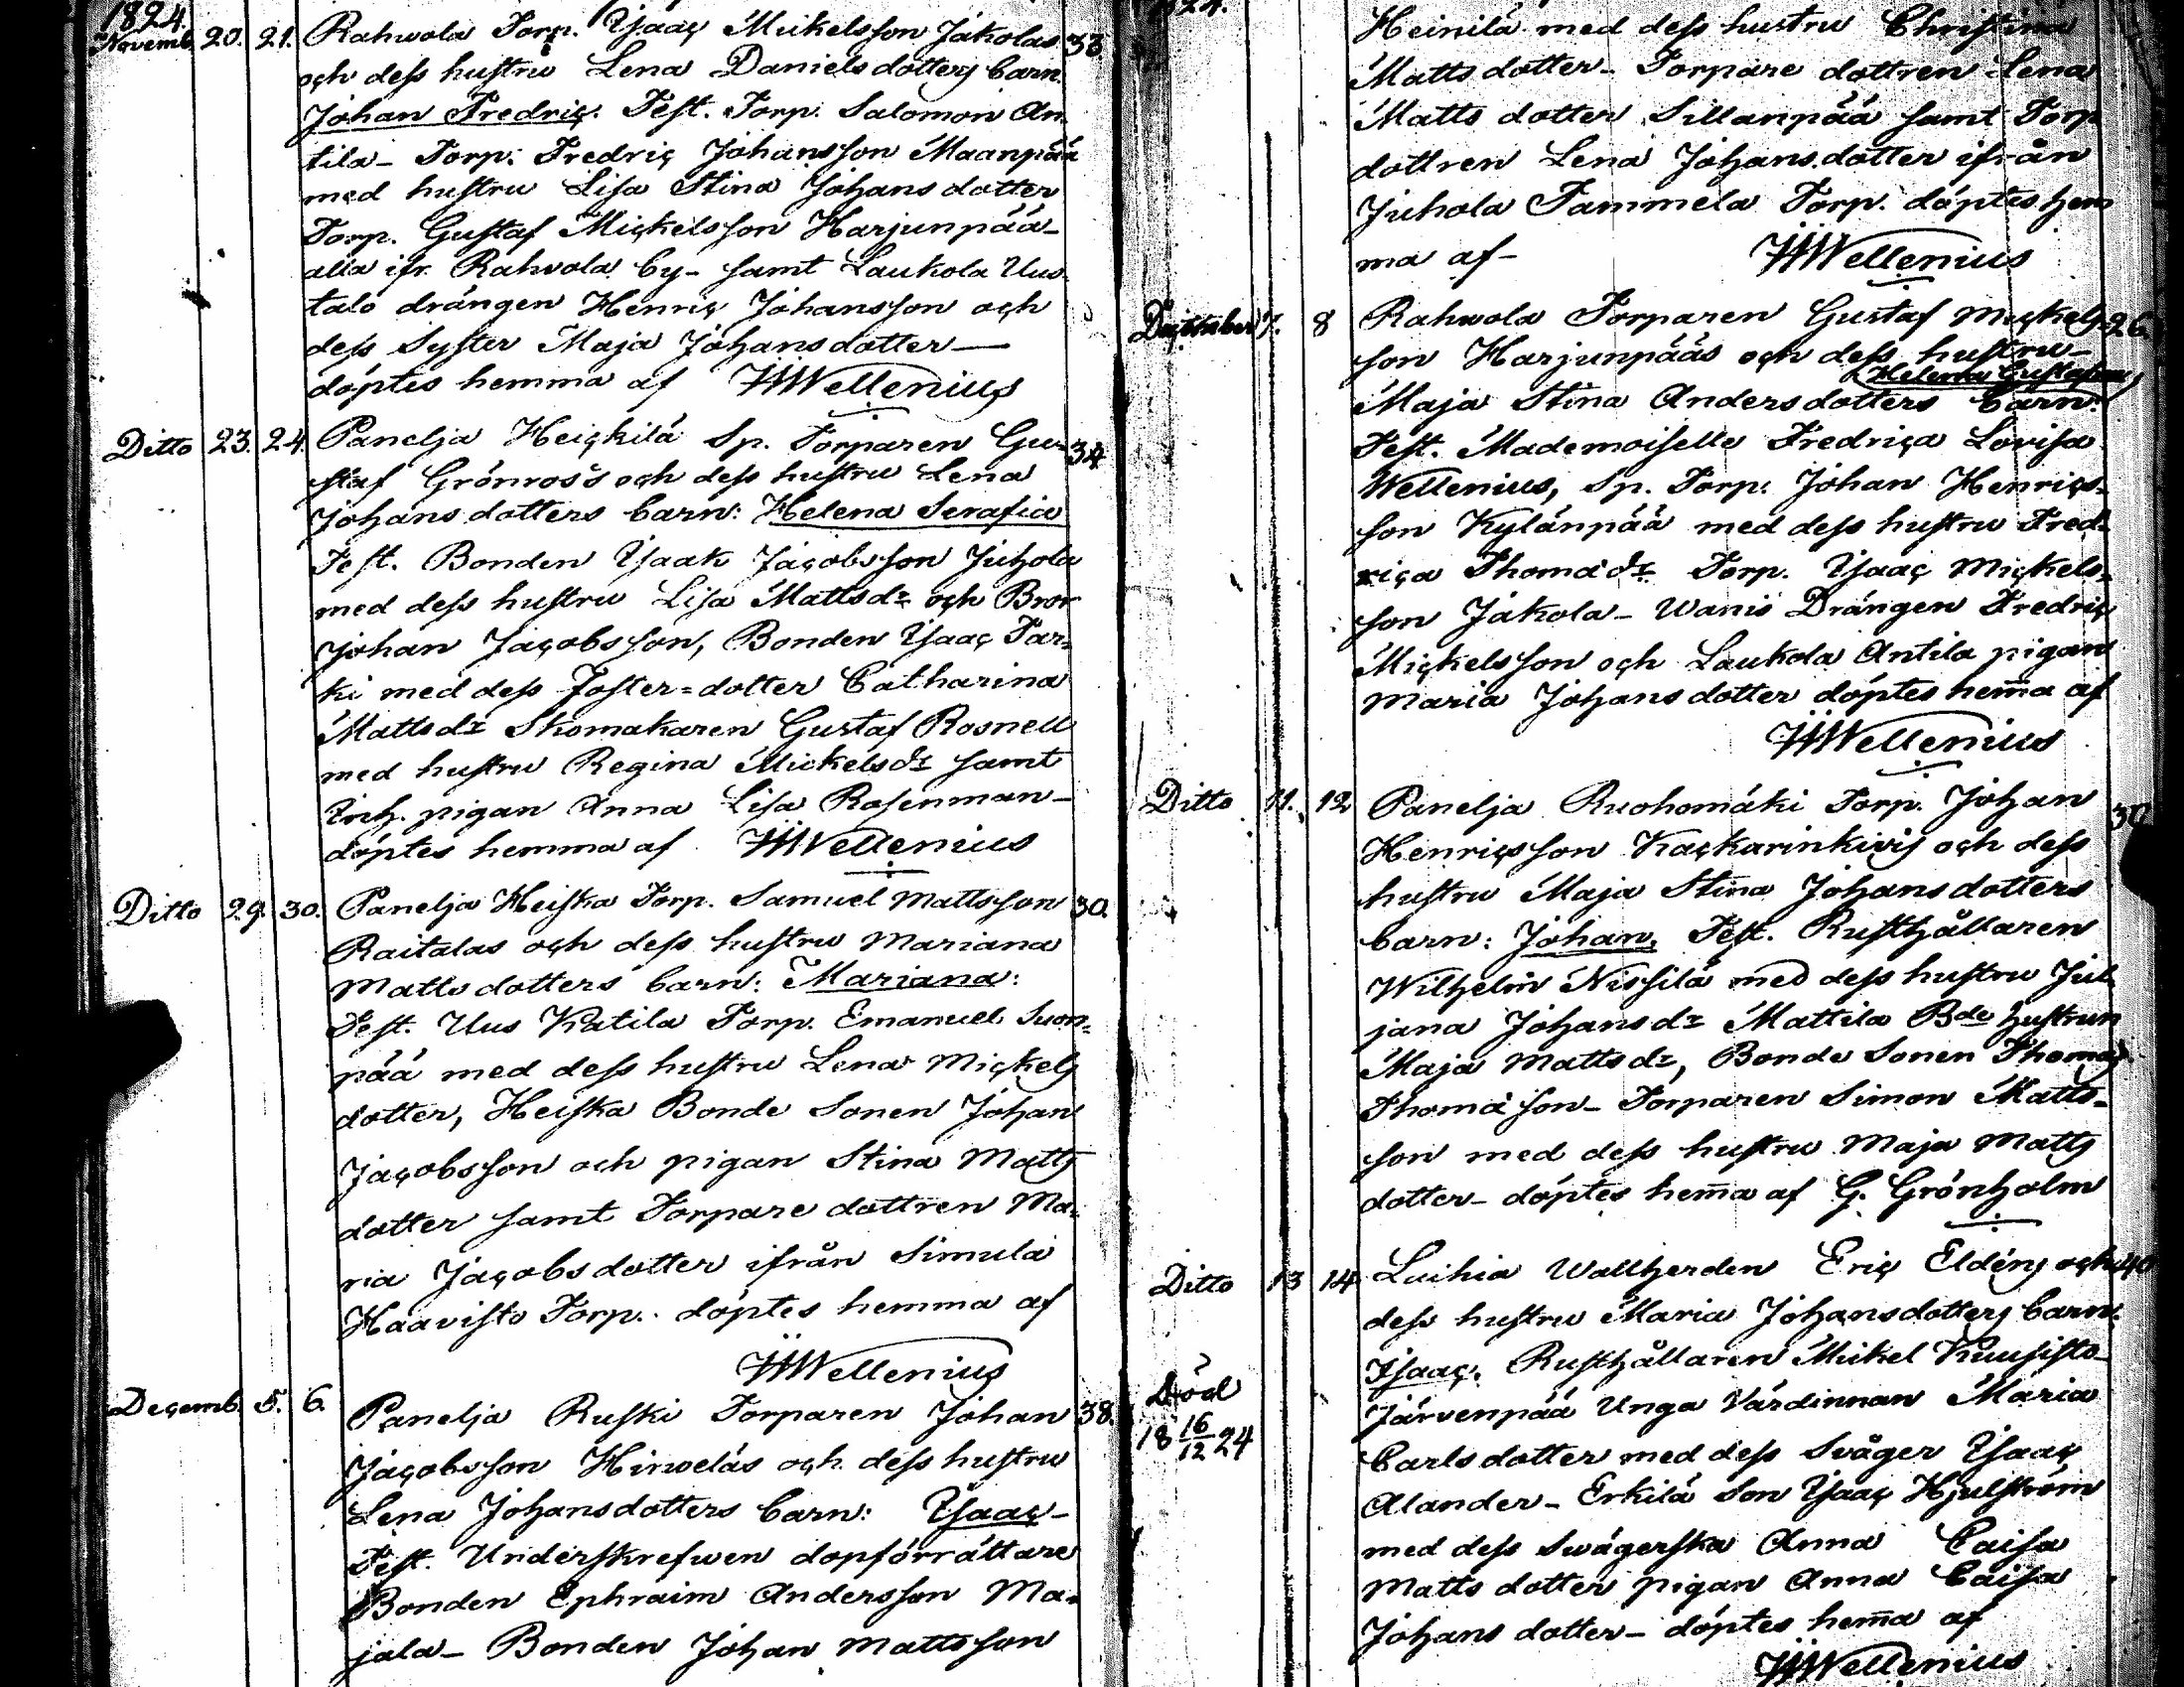 1824.
Novemb. 20. 21. Rahwola Torp. Ysaaç Mickelsson Jakolas 33
oçh dess hustru Lena Danielsdotters barn.
Johan Fredriç. Test. Torp. Salomon An-
tila_ Torp. Fredriç Johansson Maanpää
med hustru Lisa Stina Johans dotter
Torp. Gustaf Miçkelsson Harjunpää_
alla ifr. Rahvola by_ samt Laukola Uus
talo drängen Henriç Johansson oçh
dess Syster Maja Johansdotter_
döptes hemma af HWellenius
Ditto 23. 24. Panelja Heiçkilä Sp. Torparen Gu= 34
staf Grönros's oçh dess hustru Lena
Johans dotters barn: Helena Serafia
Test. Bonden Ysaak Jaçobsson Juhola
med dess hustru Lisa Mattsdr oçh Bror
Johan Jaçobsson, Bonden Ysaaç Tar=
ki med dess Foster=dotter Catharina
Mattsdr Skomakaren Gustaf Rosnell
med hustru Regina Mickelsdr samt
Inh. pigan Anna Lisa Rosenman_
döptes hemma af HWellenius
Ditto 29. 30. Panelja Heiska Torp. Samuel Mattsson 30.
Raitalas oçh dess hustru Mariana
Matts dotters barn: Mariana:
Test. Uus Katila Torp. Emanuel Suon=
pää med dess hustru Lena Miçkels
dotter, Heiska Bonde Sonen Johan
Jaçobsson och pigan Stina Matts
dotter samt Torpare dottren Ma=
ria Jaçobsdotter ifrån Simula
Haavisto Torp. döptes hemma af
HWellenius
Deçemb. 5. 6. Panelja Ruski Torparen Johan 38.
Jaçobsson Hirweläs oçh dess hustru
Lena Johansdotters barn: Ysaaç_
Test. Underskrefwen dopförrättare
Bonden Ephraim Andersson Ma=
jala_ Bonden Johan Mattsson
1824.
Heinilä med dess hustru Christina
Matts dotter_ Torpare dottren Lena
Matts dotter Sillanpää samt Torp
dottren Lena Johans dotter ifrån
Juhola Tammela Torp. döptes hem
ma af_ HWellenius
7. 8 Rahwola Torparen Gustaf Miçkels 26.
son Harjunpääs oçh dess hustru_
Helena Gustafva
Maja Stina Andersdotters barn:
Test. Mademoiselle Fredriça Lovisa
Wellenius, Sp. Torp. Johan Henriçs=
son Kylänpää med dess hustru Fred=
riça Thomädr Torp. Ysaaç Miçkels=
son Jakola_ Wanis Drängen Fredriç
Miçkelsson oçh Laukola Antila pigan
Maria Johansdotter döptes hem̄a af
HWellenius
Ditto 11. 12 Panelja Ruohomäki Torp. Johan 30
Henriçsson Kaçkarinkivis oçh dess
hustru Maja Stina Johans dotters
barn: Johan. Test. Rusthållaren
Wilhelm Nissilä med dess hustru Jul
jana Johansdr Mattila Bde hustrun
Maja Mattsdr, Bonde Sonen Thomas
Thomä son_ Torparen Simon Matts=
son med dess hustru Maja Matts
dotter_ döptes hem̄a af G. Grönholm
Ditto 13 14 Luihia Wallherden Eriç Eldéns oçh 40
dess hustru Maria Johansdotters barn.
Ysaaç. Rusthållaren Mickel Kuusisto_
Död
18 16/12 24
Järvenpää Unga Värdinnan Maria
Carlsdotter med dess Svåger Ysaaç
Alander_ Erkilä Son Ysaaç Hjulström
med dess Swägerska Anna Caisa
Matts dotter pigan Anna Caisa
Johans dotter_ döptes hem̄a af
HWellenius